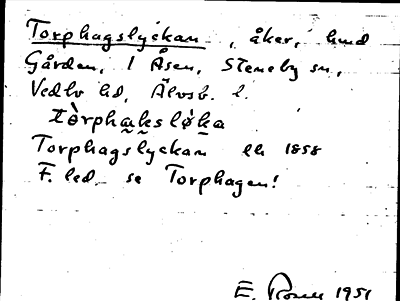 Torphagslyckan, åker, hmd
Gården, 1 Åsen, Steneby sn,
Vedbo hd, Älvsb. l.
tòrphaksløka
Torphagslyckan lk 1858
F. led se Torphagen!
E. 1951